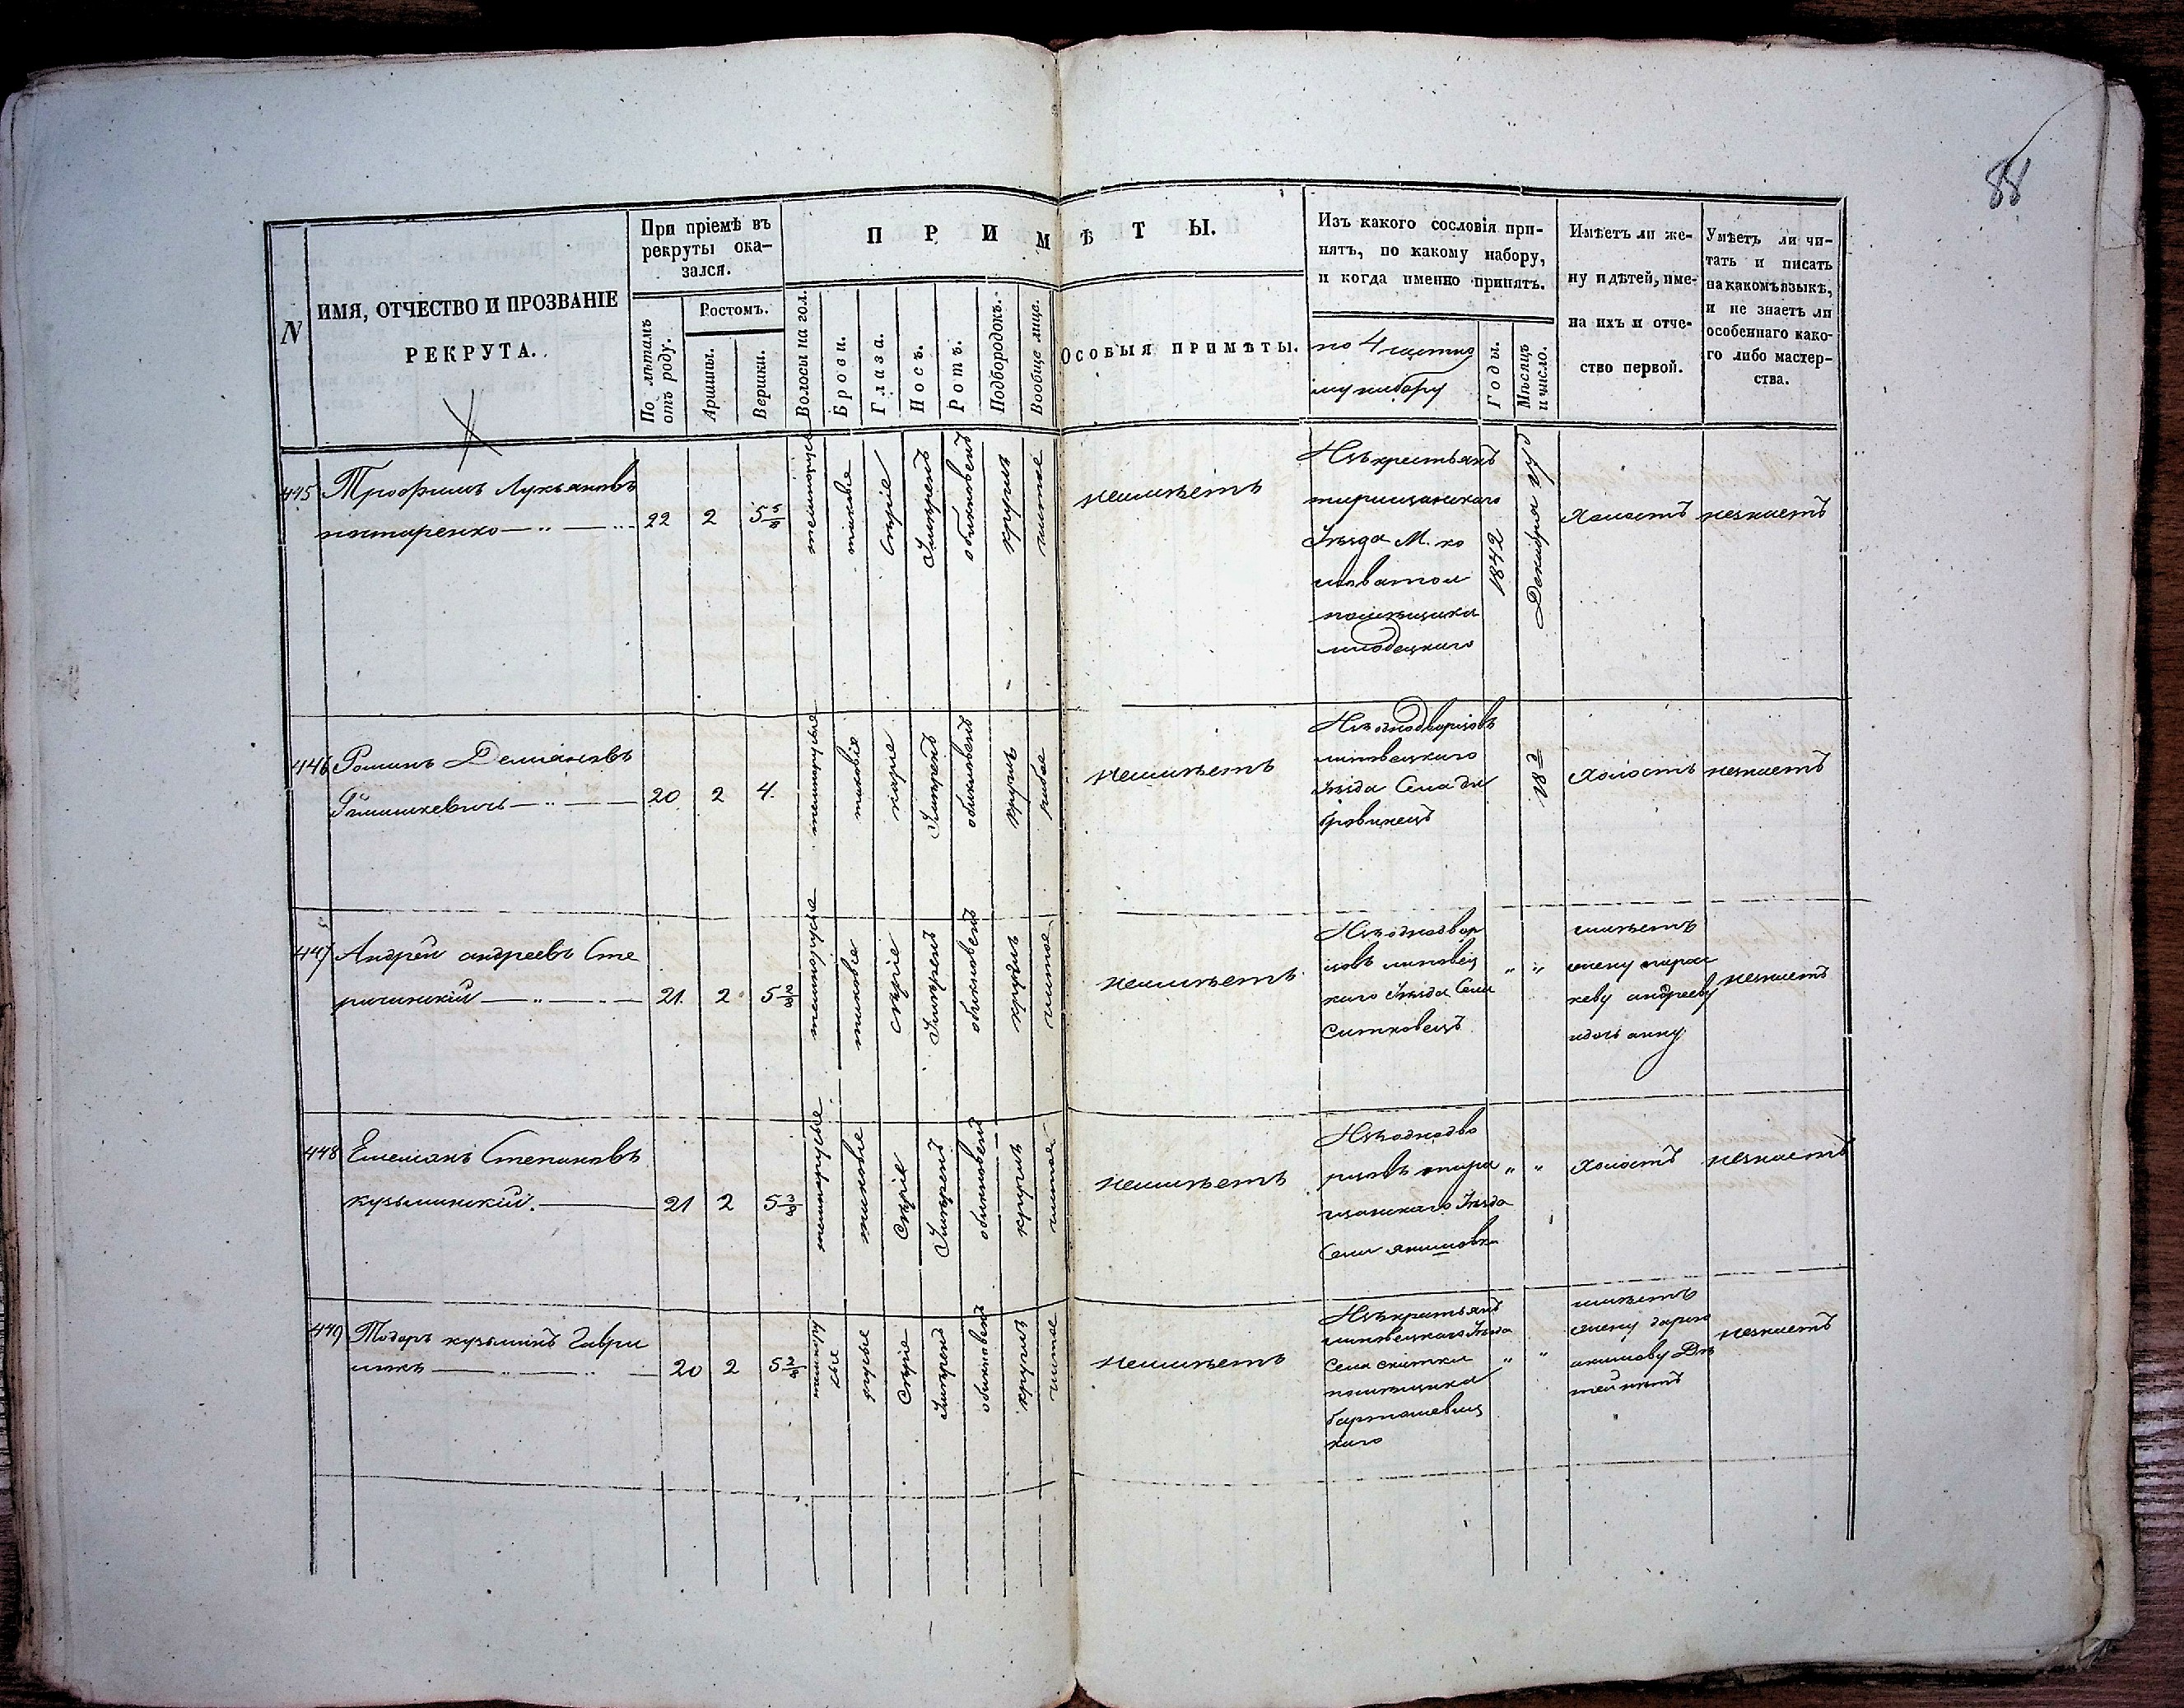 88
N
ИМЯ, ОТЧЕСТВО И ПРОЗВАНІЕ
РЕКРУТА.
При пріемѣ въ
рекруты ока-
зался.
По лѣтамъ
отъ роду.
Ростомъ.
Аршины.
Вершки.
ПРИМѢТЫ.
Волосы на гол.
Брови.
Глаза.
Носъ.
Ротъ.
Подбородокъ.
Вообще лица.
ОСОБЫЯ ПРИМѢТЫ.
Изъ какого сословія при-
нятъ, по какому набору,
и когда именно принятъ.
по 4 частно
му набору
Годы.
Мѣсяцъ
и число.
Имѣетъ ли же-
ну и дѣтей, име-
на ихъ и отче-
ство первой.
Умѣетъ ли чи-
тать и писать
на какомъ языкѣ,
и не знаетъ ли
особеннаго како-
го либо мастер-
ства.
445
Трофимъ Лукьяновъ
22
2
5 5/8
темнорусые
таковые
Сѣріе
Умѣренъ
обыкновенъ
круглъ
чистое
неимѣетъ
Изъкрестьянъ
таращанскаго
Уѣзда М.
помѣщика
1842
Декабря
Холостъ
незнаетъ
446
Романъ Деміановъ
20
2
4.
темнорусые
таковіе
каріе
Умѣренъ
обыкновенъ
круглъ
рябое
неимѣетъ
Изъ однодворцовъ
липовецкаго
уѣзда Села
18
Холостъ
незнаетъ
447
Андрей андреевъ Сте
21.
2
5 2/8
темнорусые
таковые
сѣріе
Умѣренъ
обыкновенъ
круглъ
чистое
неимѣетъ
Изъ однодвор
цовъ липовец
каго Уѣзда Села
Ситковецъ
„ „
имѣетъ
жену парас
кеву андрееву
идочь анну
незнаетъ
448
Емеліанъ Степановъ
кузьминскій.
21
2
5 3/8
темнорусые
таковые
Сѣріе
Умѣренъ
обыкновенъ
круглъ
чистое
неимѣетъ
Изъ однодво
рцовъ тара
щанскаго Уѣзда
Села якимовки
„ „
Холостъ
незнаетъ
449
Тодоръ кузьминъ Гаври
люкъ
20
2
5 2/8
темнору
сые
русые
Сѣріе
Умѣренъ
обыкновенъ
круглъ
чистое
неимѣетъ
Изъ крестьянъ
липовецкаго Уѣзда
Села скитки
помѣщика
бартошевиц
каго
„ „
имѣетъ
жену дарію
акимову Дѣ
тей нѣтъ
незнаетъ